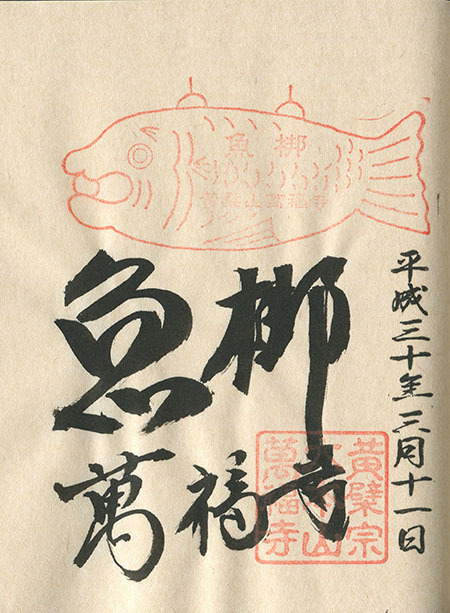 魚梆
黄檗山萬福寺
魚梆
萬福寺
平成三十年三月十一日
黄檗宗
大本山
萬福寺